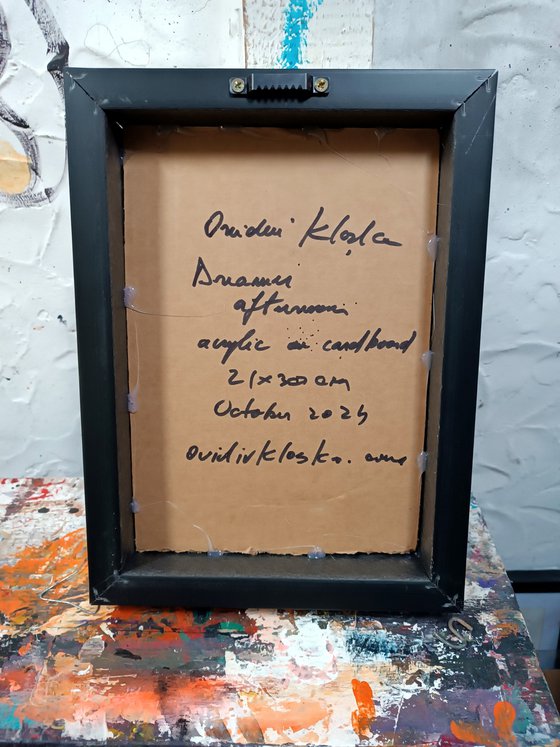 Ovidiu Kloska
Dreamy
afternoon
acrylic on cardboard
21x30 cm
October 2024
ovidiukloska.com